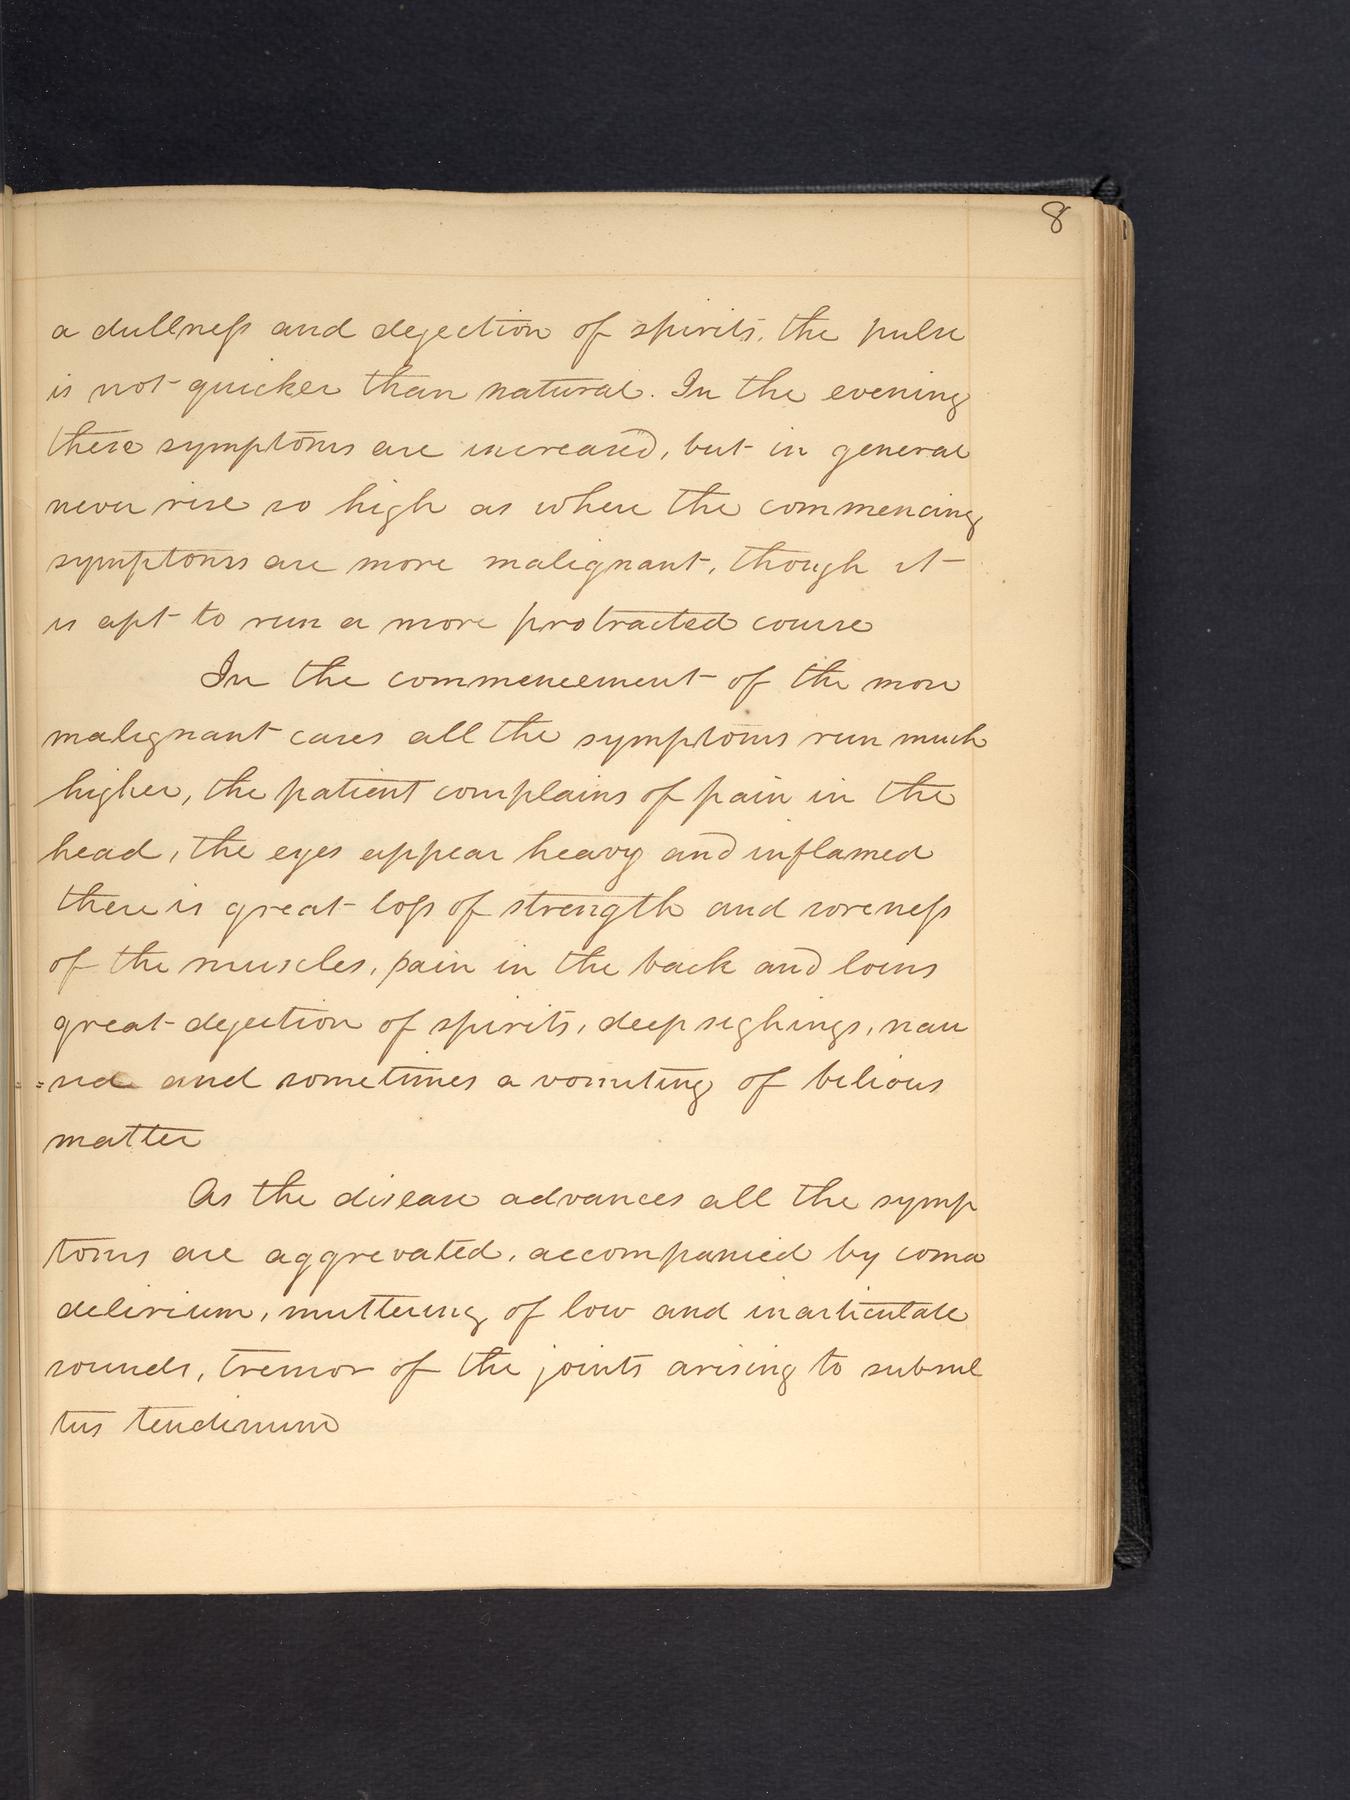 8
a dullneſs and dejection of spirits, the pulse
is not quicker than natural. In the evening
these symptoms are increased, but in general
never rise so high as where the commencing
symptoms are more malignant, though it
is apt to run a more protracted course
In the commencement of the more
malignant cases all the symptoms run much
higher, the patient complains of pain in the
head, the eyes appear heavy and inflamed
there is great loſs of strength and soreneſs
of the muscles, pain in the back and loins
great dejection of spirits, deep sighings, nau
=sea and sometimes a vomiting of bilious
matter
As the disease advances all the symp
toms are aggrevated, accompanied by coma
delirium, muttering of low and inarticulate
sounds, tremor of the joints arising to subsul
tus tendinum